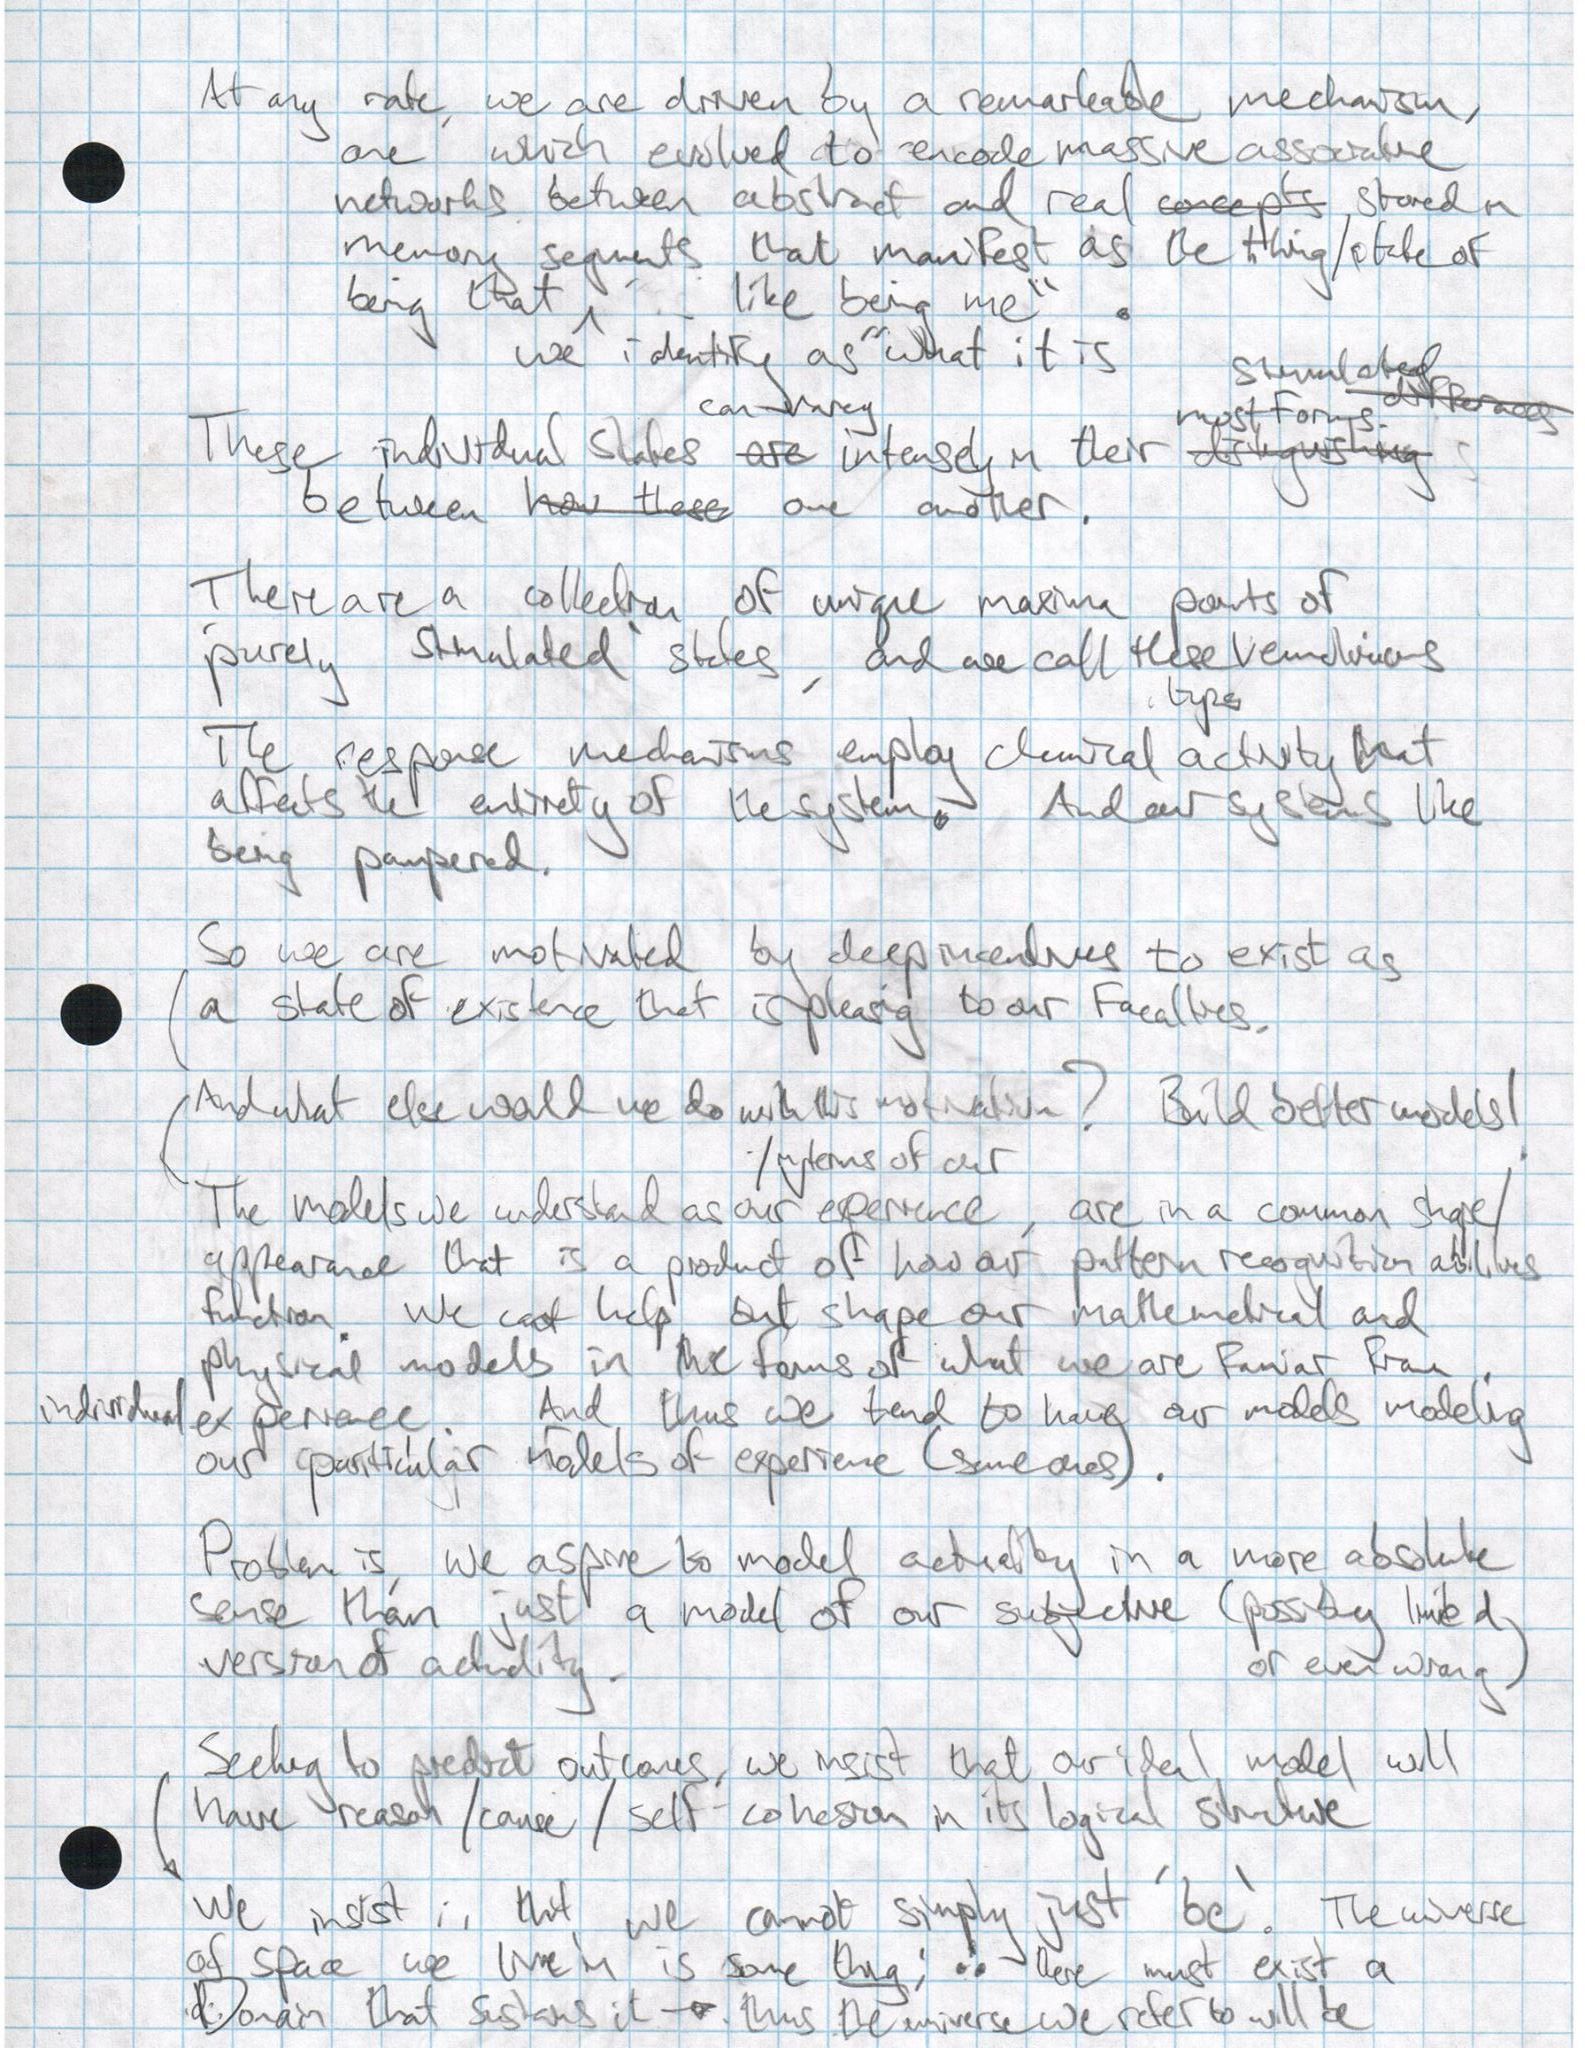 At any rate, we are driven by a remarkable mechanism,
one which evolved to encode massive associative
networks between abstract and real concepts stored in
memory segments that manifest as the thing/state of
being that, like being me".
we identify as "what it is
stimulated differences
can vary most forms
These individual states are intensely in their distinguishing
between how these one another.
There are a collection of unique maxima points of
purely stimulated states, and we call these
type
The response mechanisms employ chemical activity that
affects the entirety of the system. And our systems like
being pampered.
So we are motivated by deep incentives to exist as
a state of existence that is pleasing to our Faculties.
And what else would we do with this motivation? Build better models!
/in terms of our
The models we understand as our experience, are in a common shape/
appearance that is a product of how our pattern recognition abilities
function. We cant help but shape our mathematical and
physical models in the forms of what we are Famiar From
individual experience. And thus we tend to have our models modeling
our particular models of experience (same ones).
Problem is, we aspire to model actuality in a more absolute
sense than just a model of our subjective (possibly limited
version of actuality. or even wrong)
Seeking to predict outcomes, we insist that our ideal model will
have reason/cause/self-cohesion in its logical structure
We insist that we cannot simply just 'be'. The universe
of space we live in is some thing; ∴ there must exist a
Domain that sustains it → thus the universe we refer to will be